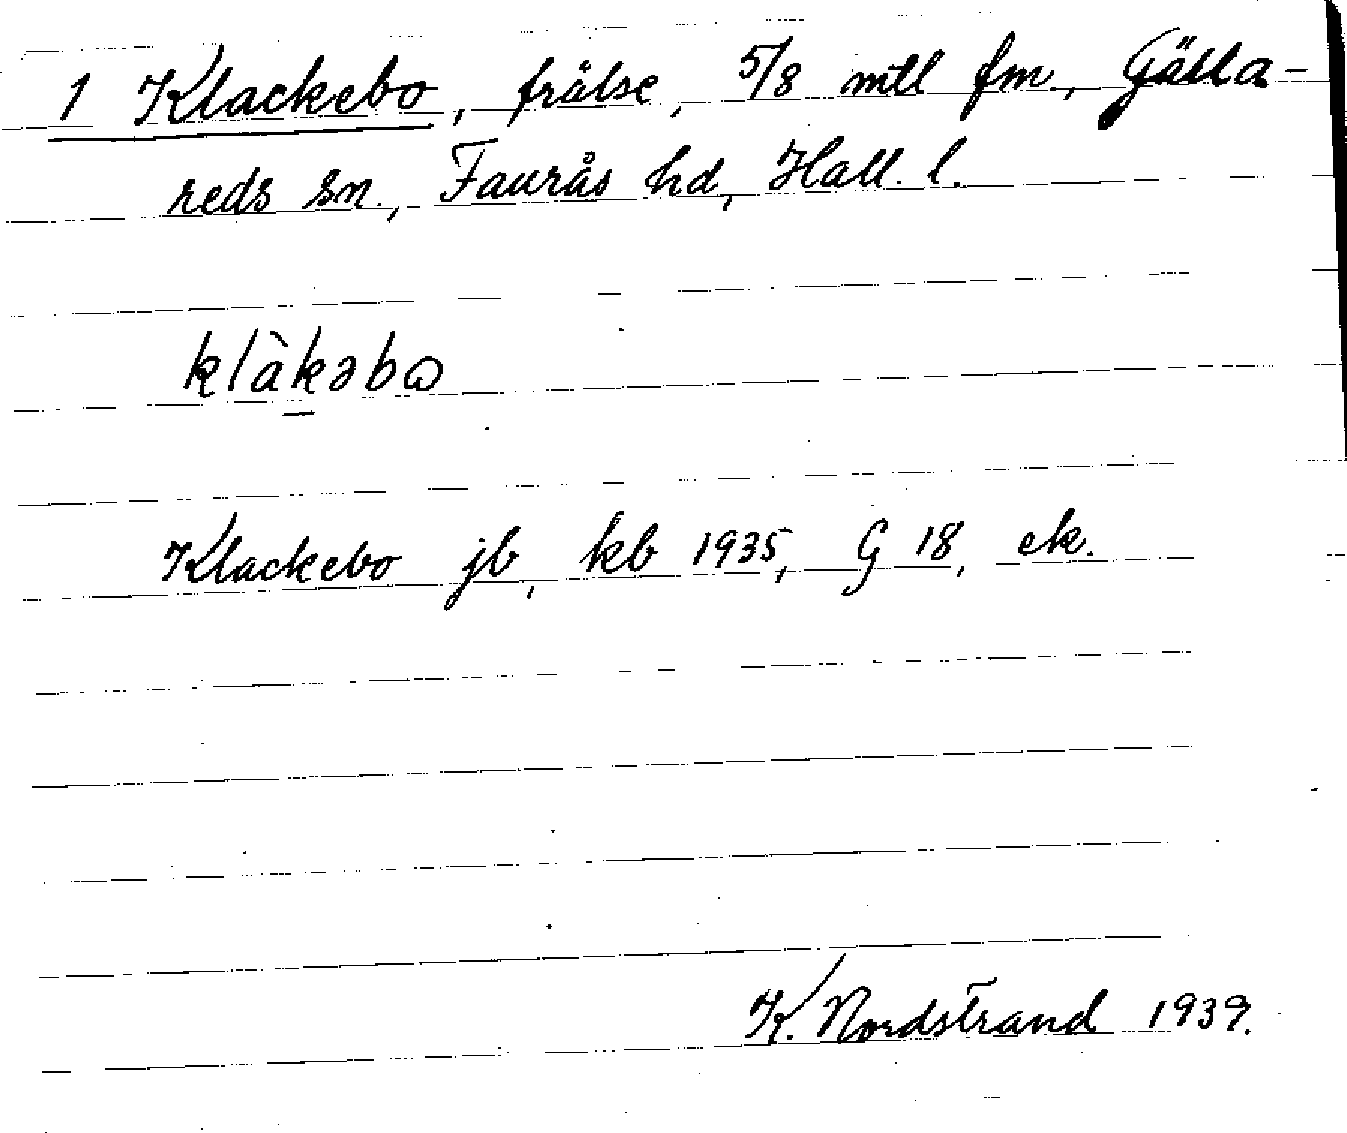 1 Klackebo, frälse, 5/8 mtl fm, Gälla-
reds sn., Faurås hd, Hall. l.
klàkəbɷ
Klackebo jb, kb 1935, G 18, ek.
K. Nordstrand 1939.